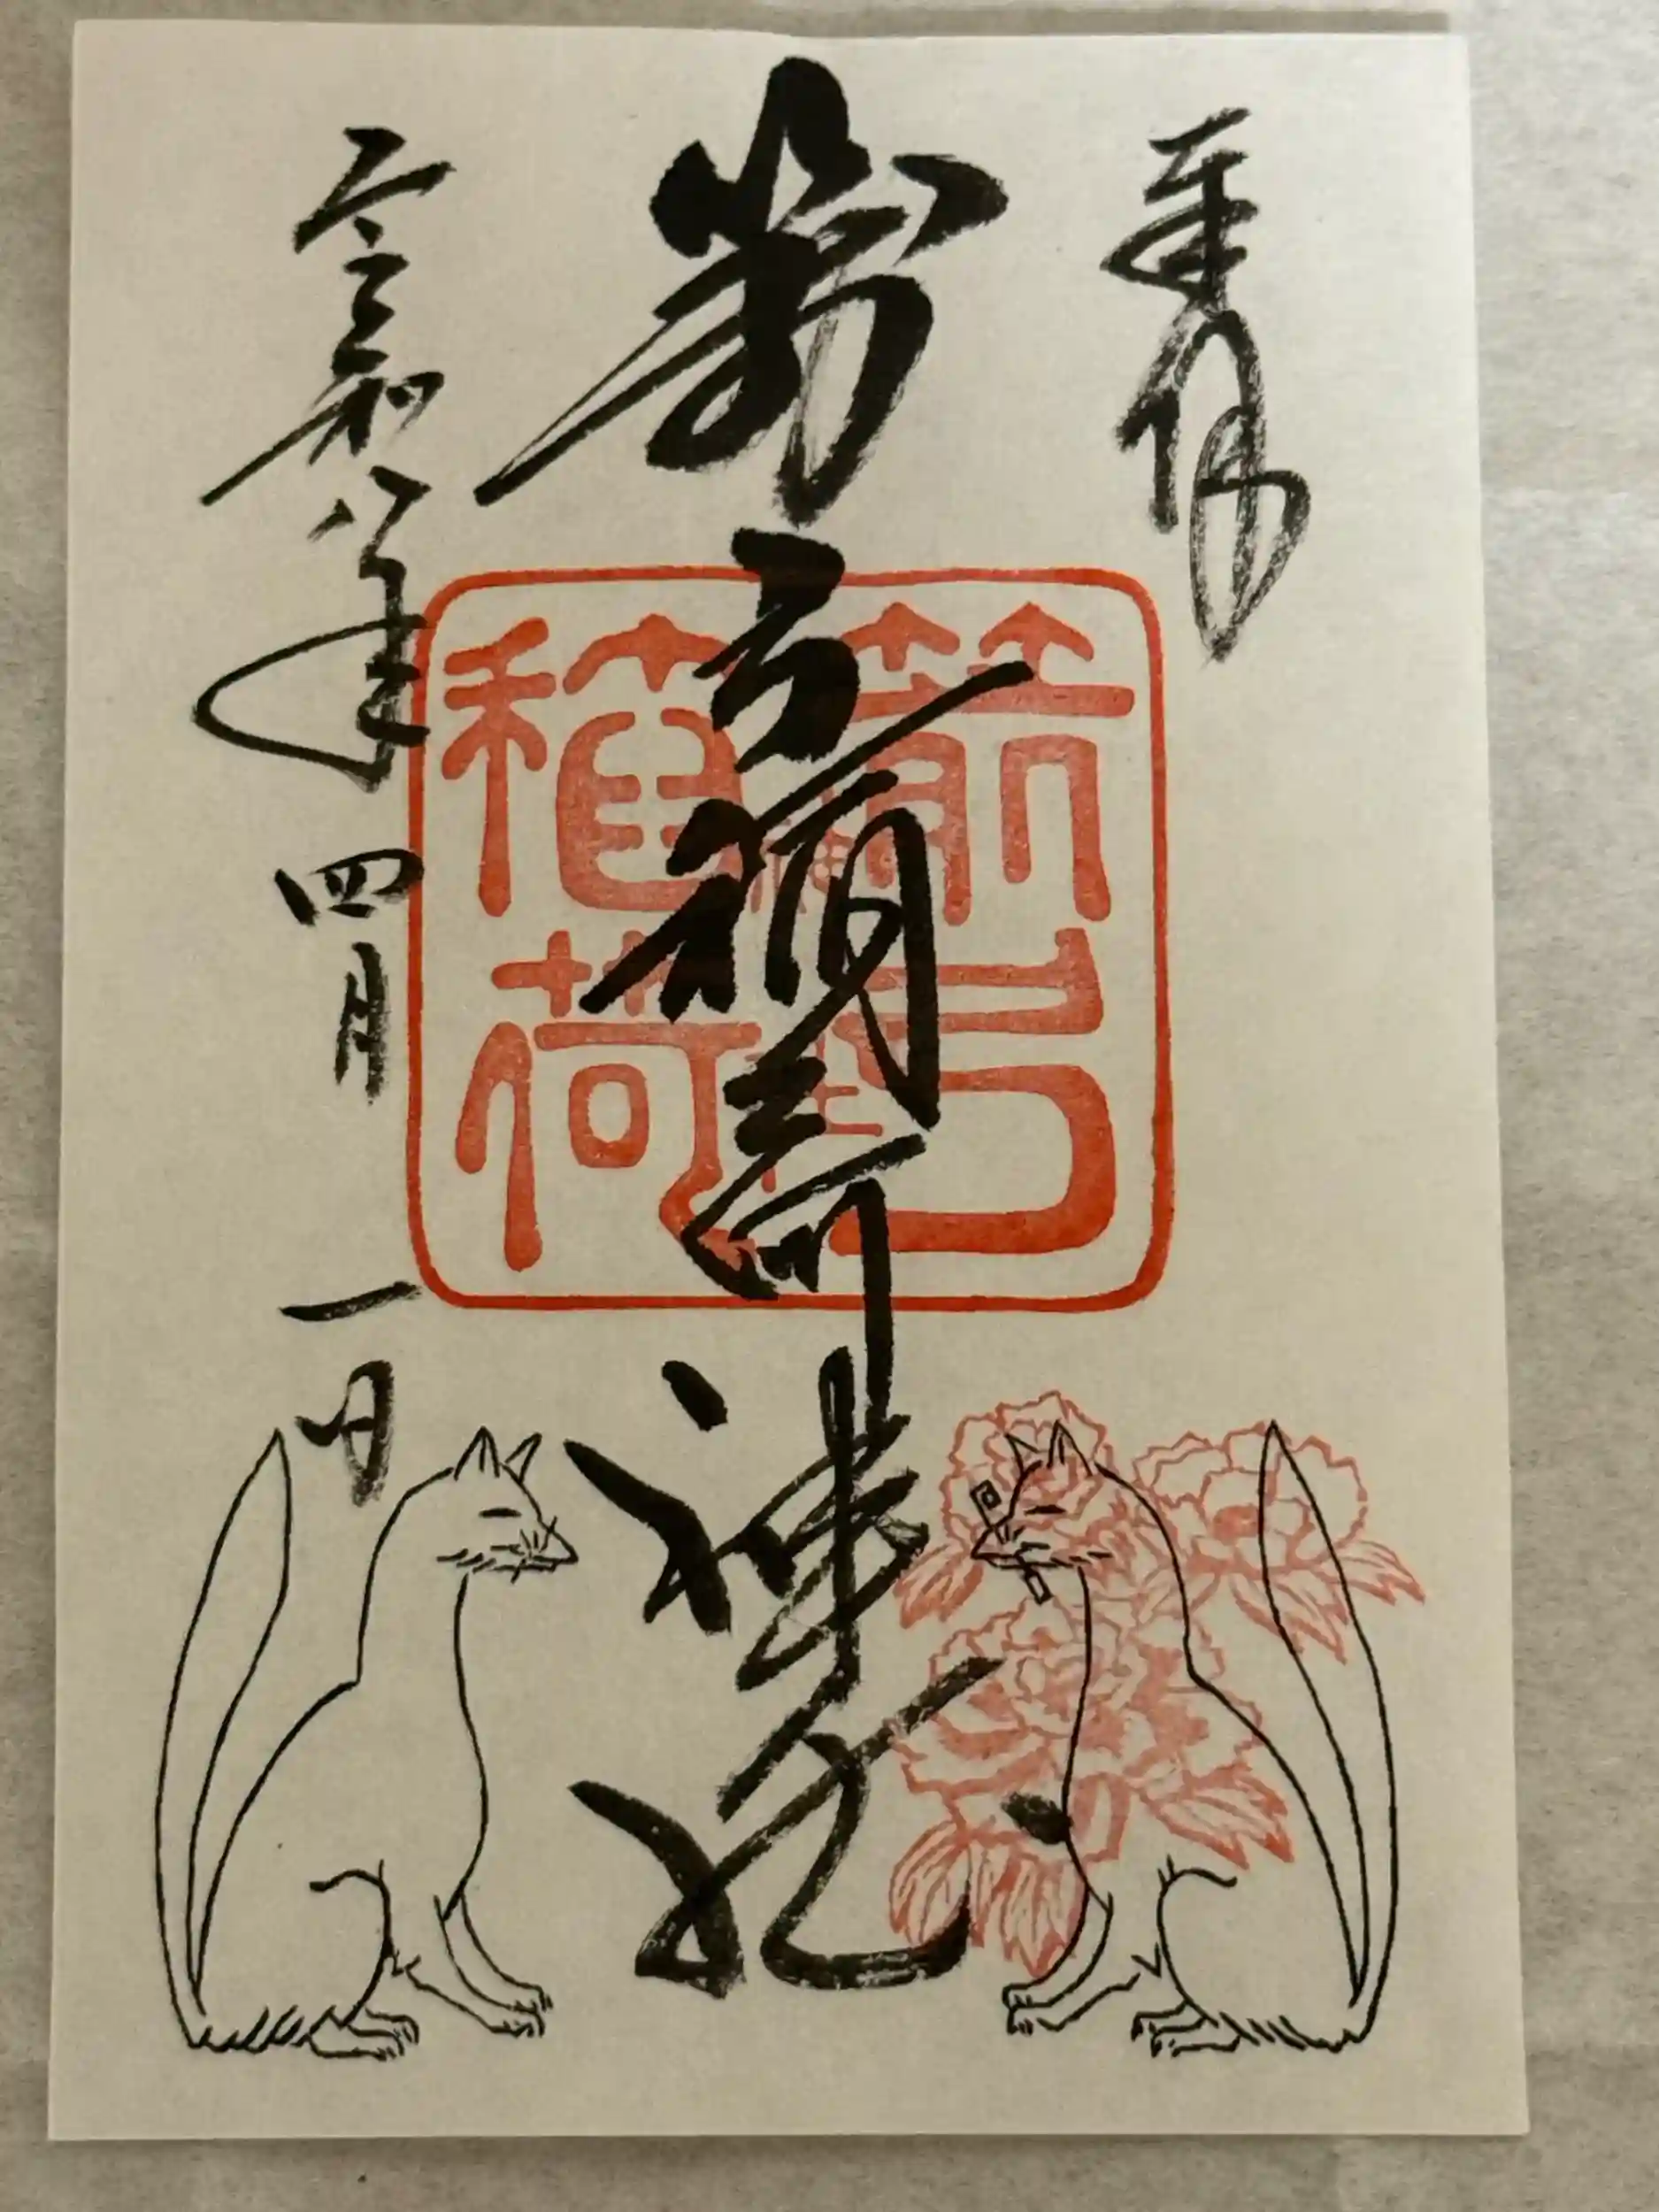 奉拝
箭弓稲荷神社
箭弓
稲荷
令和八年四月一日